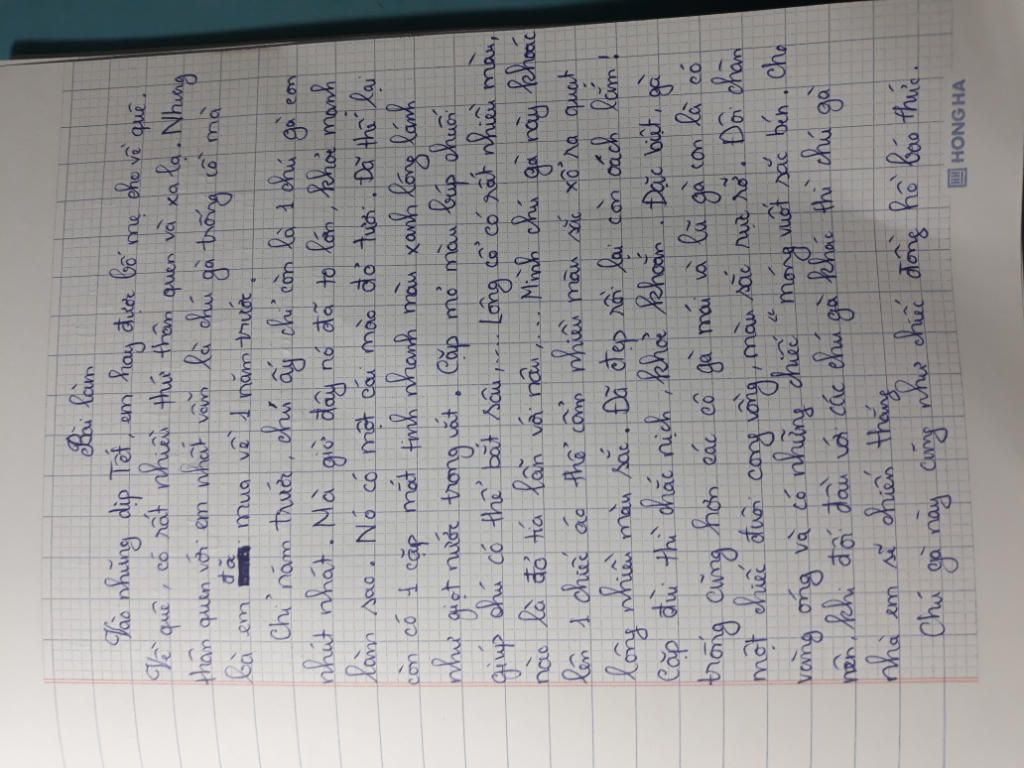 Bài làm
Vào những dịp Tết, em hay được bố mẹ cho về quê.
Về quê, có rất nhiều thứ thân quen và xa lạ. Nhưng
thân quen với em nhất vẫn là chú gà trống cồ mà
đã
bà em mua về 1 năm trước.
Chỉ năm trước, chú ấy chỉ còn là 1 chú gà con
nhút nhát. Mà giờ đây nó đã to lớn, khỏe mạnh
làm sao. Nó có một cái mào đỏ tươi. Đã thế lại
còn có 1 cặp mắt tinh nhanh màu xanh lóng lánh
như giọt nước trong vắt. Cặp mỏ màu búp chuối
giúp chú có thể bắt sâu,.... Lông cổ có rất nhiều màu,
nào là đỏ tía lẫn với nâu,... Mình chú gà này khoác
lên 1 chiếc áo thổ cẩm nhiều màu sắc xổ ra quạt
lông nhiều màu sắc. Đã đẹp rồi lại còn oách lắm!
Cặp đùi thì chắc nịch, khỏe khoắn. Đặc biệt, gà
trống cũng hơn các cô gà mái và lũ gà con là có
một chiếc đuôi cong vồng, màu sắc rực rỡ. Đôi chân
vàng óng và có những chiếc “ móng vuốt sắc bén. Cho
nên, khi đối đầu với các chú gà khác thì chú gà
nhà em sẽ chiến thắng
Chú gà này cũng như chiếc đồng hồ báo thức.
HONG HA